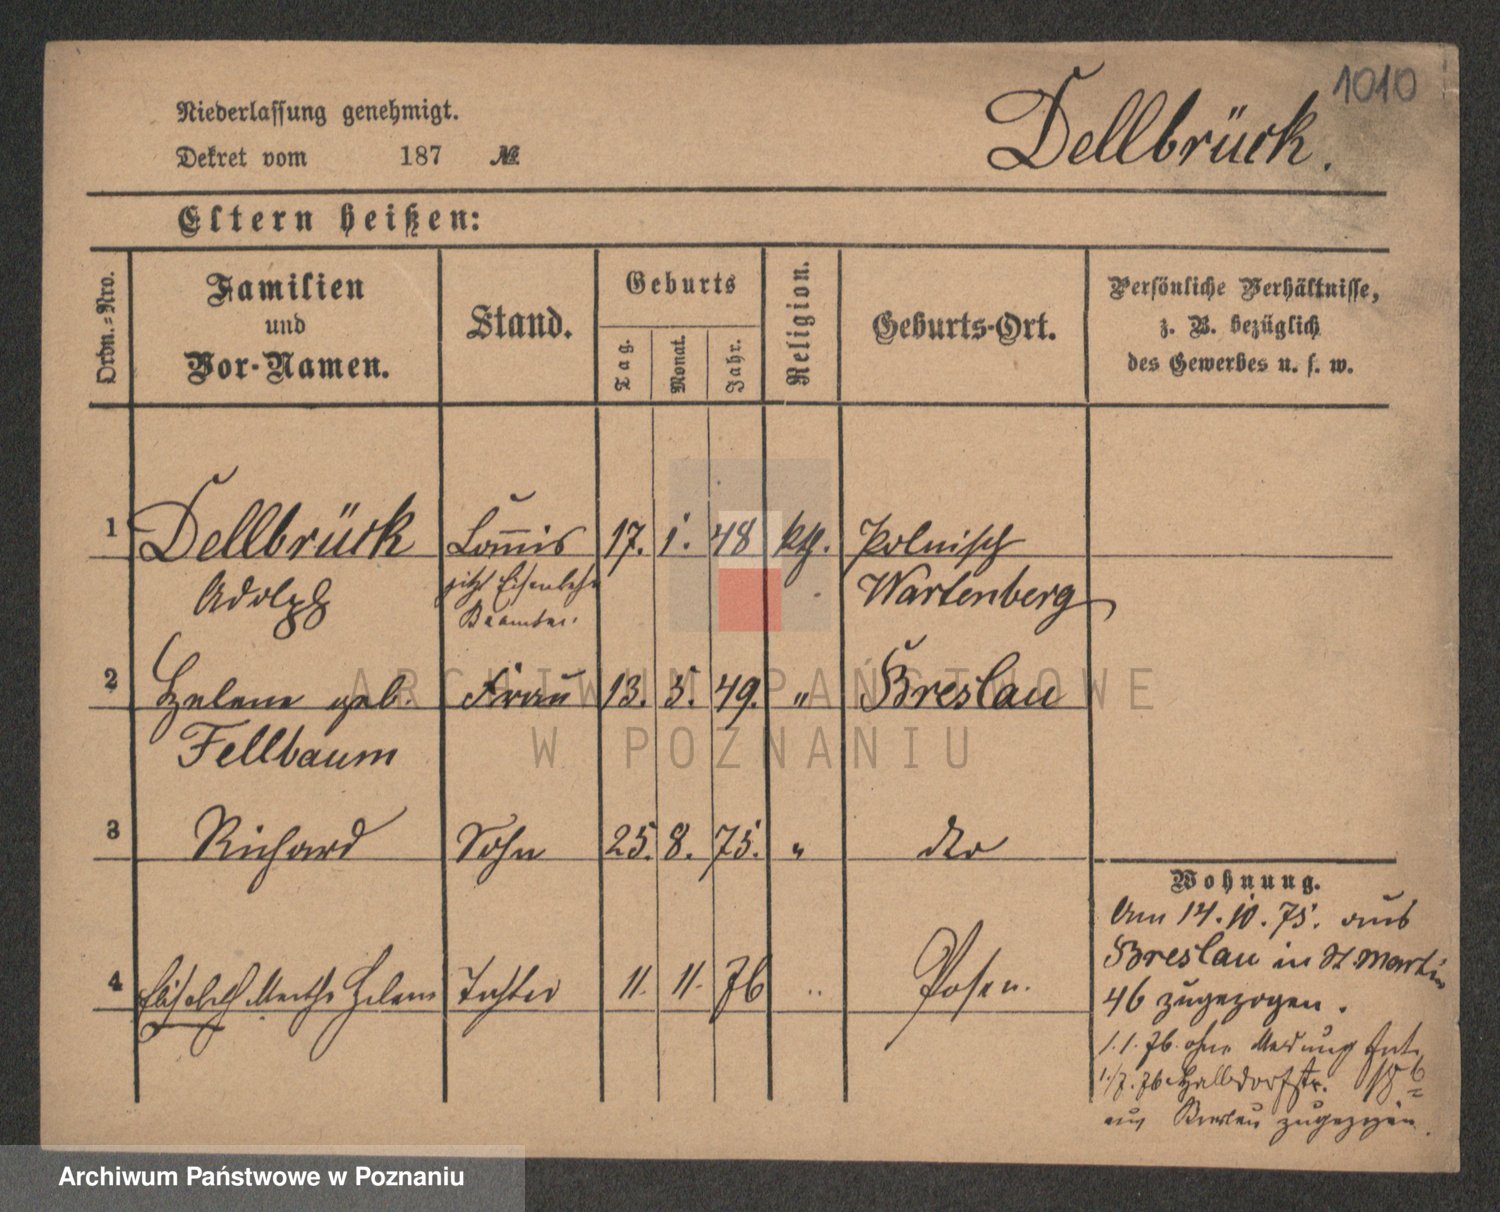 1010
Niederlassung genehmigt.
Dekret vom 187 №
Dellbrück.
Eltern heißen:
Ordn.-Nro.
Familien
und
Vor-Namen.
Stand.
Geburts
Tag.
Monat.
Jahr.
Religion.
Geburts-Ort.
Persönliche Verhältnisse,
z. B. bezüglich
des Gewerbes u. s. w.
1 Dellbrück Commis 17. 1. 48 kth. Polnisch
Adolph jetzt Eisenbahn Wartenberg
Beamter.
2 Helene geb. Frau 13. 5. 49. " Breslau
Fellbaum
3 Richard Sohn 25. 8. 75. " dto
4 Elisabeth Martha Helene Tochter 11. 11. 76 " Posen.
Wohnung.
Am 14.10.75. aus
Breslau in St Martin
46 zugezogen.
1.1.76. ohne Meldung
1./7.76 Halbdorfstr.
aus Breslau zugezogen.
ARCHIWUM PAŃSTWOWE
W POZNANIU
Archiwum Państwowe w Poznaniu